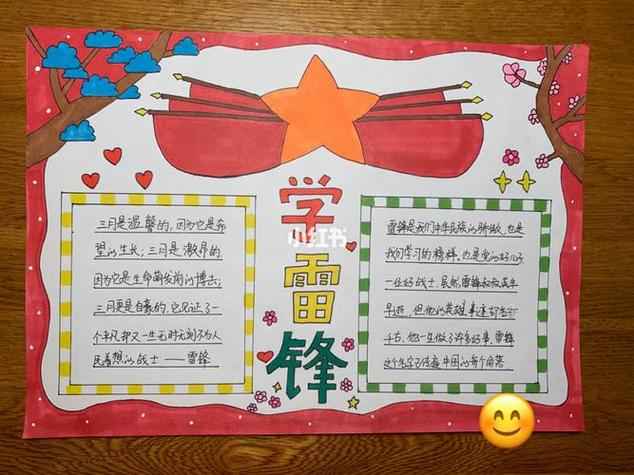 学
小红书
雷
锋
三月是温馨的,因为它是希
望的生长;三月是激昂的
因为它是生命萌发间的搏击;
三月更是自豪的,它见证了一
个平凡却又一生无时无刻不为人
民着想的战士——雷锋
雷锋是我们中华民族的骄傲,也是
我们学习的榜样,也是党的好儿子
一位好战士,虽然雷锋叔叔英年
早逝,但他的英雄事迹却
千古,他一生做了许多好事,雷锋
这个名字传遍中国的每个角落